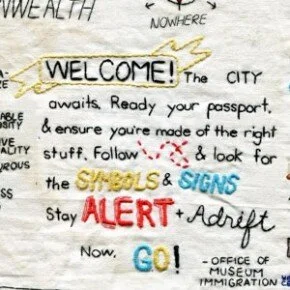 NWEALTH
NOWHERE
WELCOME! The CITY
awaits. Ready your passport,
& ensure you're made of the right
stuff. Follow & look for
the SYMBOLS & SIGNS
Stay ALERT + Adrift
Now, GO!
- OFFICE OF
MUSEUM
IMMIGRATION